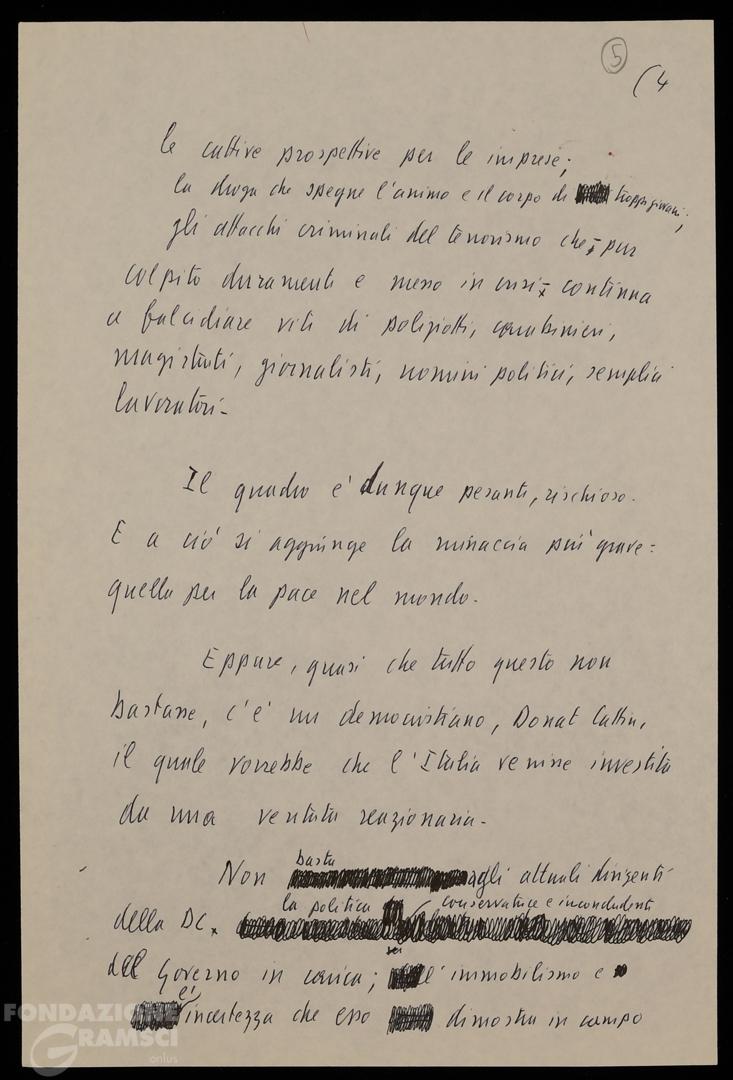 5
(4
le cattive prospettive per le imprese;
la droga che spegne l'animo e il corpo di troppi giovani;
gli attacchi criminali del terrorismo che - pur
colpito duramente e messo in crisi - continua
a falcidiare vite di poliziotti, carabinieri,
magistrati, giornalisti, uomini politici, semplici
lavoratori -
Il quadro è dunque pesante, rischioso.
E a ciò si aggiunge la minaccia più grave:
quella per la pace nel mondo.
Eppure, quasi che tutto questo non
bastasse, c'è un democristiano, Donat Cattin,
il quale vorrebbe che l'Italia venisse investita
da una ventata reazionaria -
Non basta agli attuali dirigenti
della DC la politica conservatrice e inconcludente
del Governo in carica; l'immobilismo e
incertezza che esso dimostra in campo
FONDAZIONE
GRAMSCI
onlus